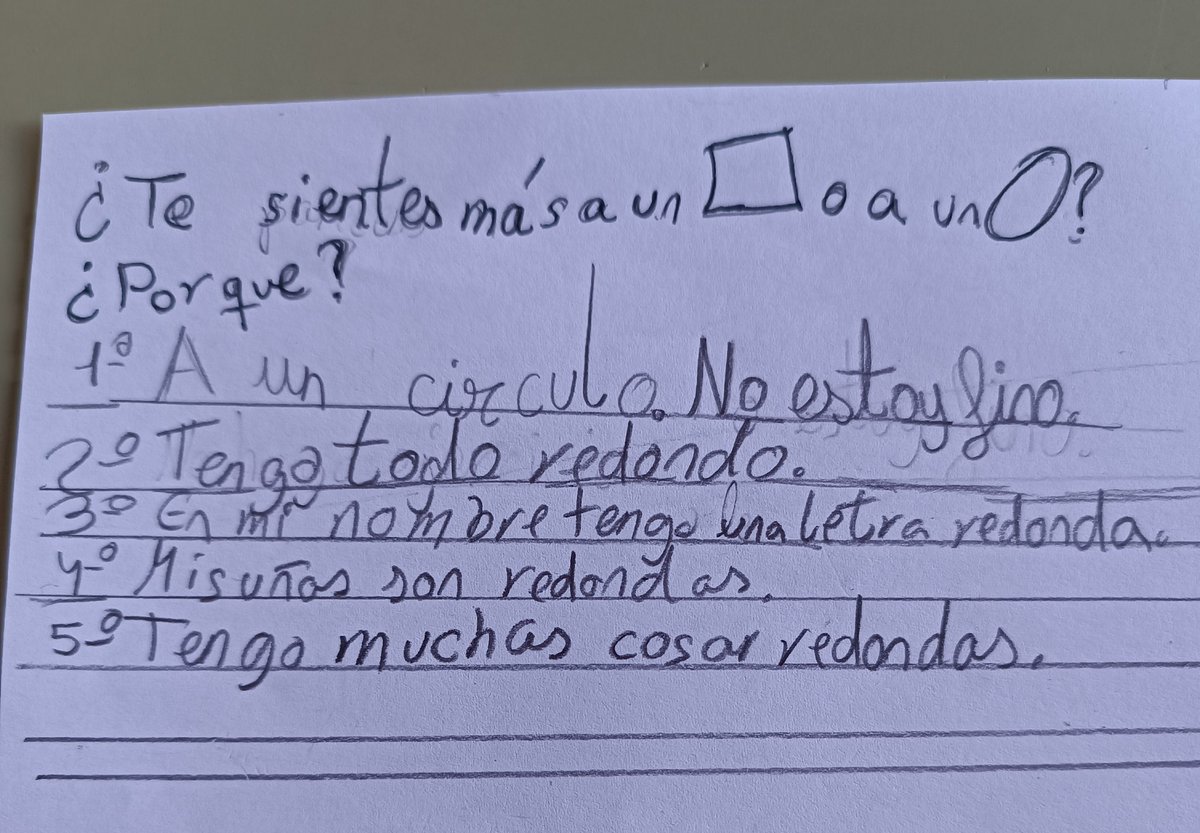 ¿Te sientes más a un □ o a un O?
¿Porque?
1º A un circulo. No estoy fino.
2º Tengo todo redondo.
3º En mi nombre tengo una letra redonda.
4º Mis uñas son redondas.
5º Tengo muchas cosar redondas.